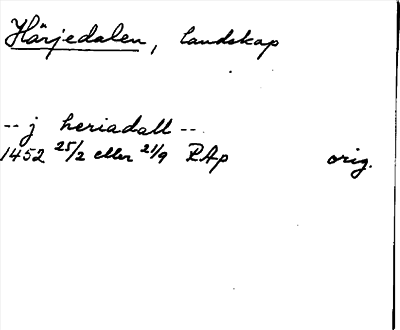 Härjedalen, landskap
-- j heriadall --
1452 25/2 eller 21/9 RAp orig.